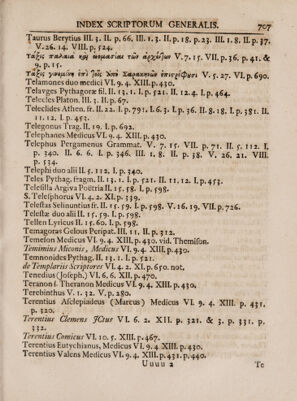 INDEX SCRIPTORUM GENERALIS. 707
Taurus Berytius III. 3. II. p. 66. III. 1. 3. II. p. 18. p. 23. III. 1. 8. II. p. 37.
V. 26. 14. VIII. p. 524.
Τάξις παλαιὰ καὶ ὀνομασίαι τῶν ἀρχόντων V. 7. 15. VII. p. 36. p. 41. &
9. p. 15.
Τάξις γινομένη ἐπὶ τοῖς ἀπὸ Σαρακηνῶν ἐπιστρέφουσι V. 5. 27. VI. p. 690.
Telamones duo medici VI. 9. 4. XIII. p. 430.
Telavges Pythagoræ fil. II. 13. 1. I. p. 521. II. 12. 4. I. p. 464.
Telecles Platon. III. 3. II. p. 67.
Teleclides Athen. fr. II. 22. I. p. 791. I. 6. 3. I. p. 36. II. 8. 18. I. p. 381. II.
11. 12. I. p. 453.
Telegonus Trag. II. 19. I. p. 692.
Telephanes Medicus VI. 9. 4. XIII. p. 430.
Telephus Pergamenus Grammat. V. 7. 15. VII. p. 71. II. 5. 112. I.
p. 340. II. 6. 6. I. p. 346. III. 1. 8. II. p. 38. V. 26. 21. VIII.
p. 534.
Telephi duo alii II. 5. 112. I. p. 340.
Teles Pythag. fragm. II. 13. 1. I. p. 521. II. 11. 12. I. p. 453.
Telesilla Argiva Poëtria II. 15. 58. I. p. 598.
S. Telesphorus VI. 4. 2. XI. p. 339.
Telestas Selinuntius fr. II. 15. 59. I. p. 598. V. 16. 19. VII. p. 726.
Telestæ duo alii II. 15. 59. I. p. 598.
Tellen Lyricus II. 15. 60. I. p. 598.
Temagoras Gelous Peripat. III. 11. II. p. 312.
Temeson Medicus VI. 9. 4. XIII. p. 430. vid. Themison.
Temimius Miconis, Medicus VI. 9. 4. XIII. p. 430.
Temnonides Pythag. II. 13. 1. I. p. 521.
de Templariis Scriptores VI. 4. 2. XI. p. 650. not.
Tenedius (Joseph.) VI. 6. 6. XII. p. 470.
Teranon s. Theranon Medicus VI. 9. 4. XIII. p. 430.
Terebinthus V. 1. 32. V. p. 280.
Terentius Asclepiadeus (Marcus) Medicus VI. 9. 4. XIII. p. 431.
p. 320.
Terentius Clemens JCtus VI. 6. 2. XII. p. 321. & 3. p. 331. p.
332.
Terentius Comicus VI. 10. 5. XIII. p. 467.
Terentius Eutychianus, Medicus VI. 9. 4. XIII. p. 430.
Terentius Valens Medicus VI. 9. 4. XIII. p. 431. p. 440.
Uuuu 2 Te